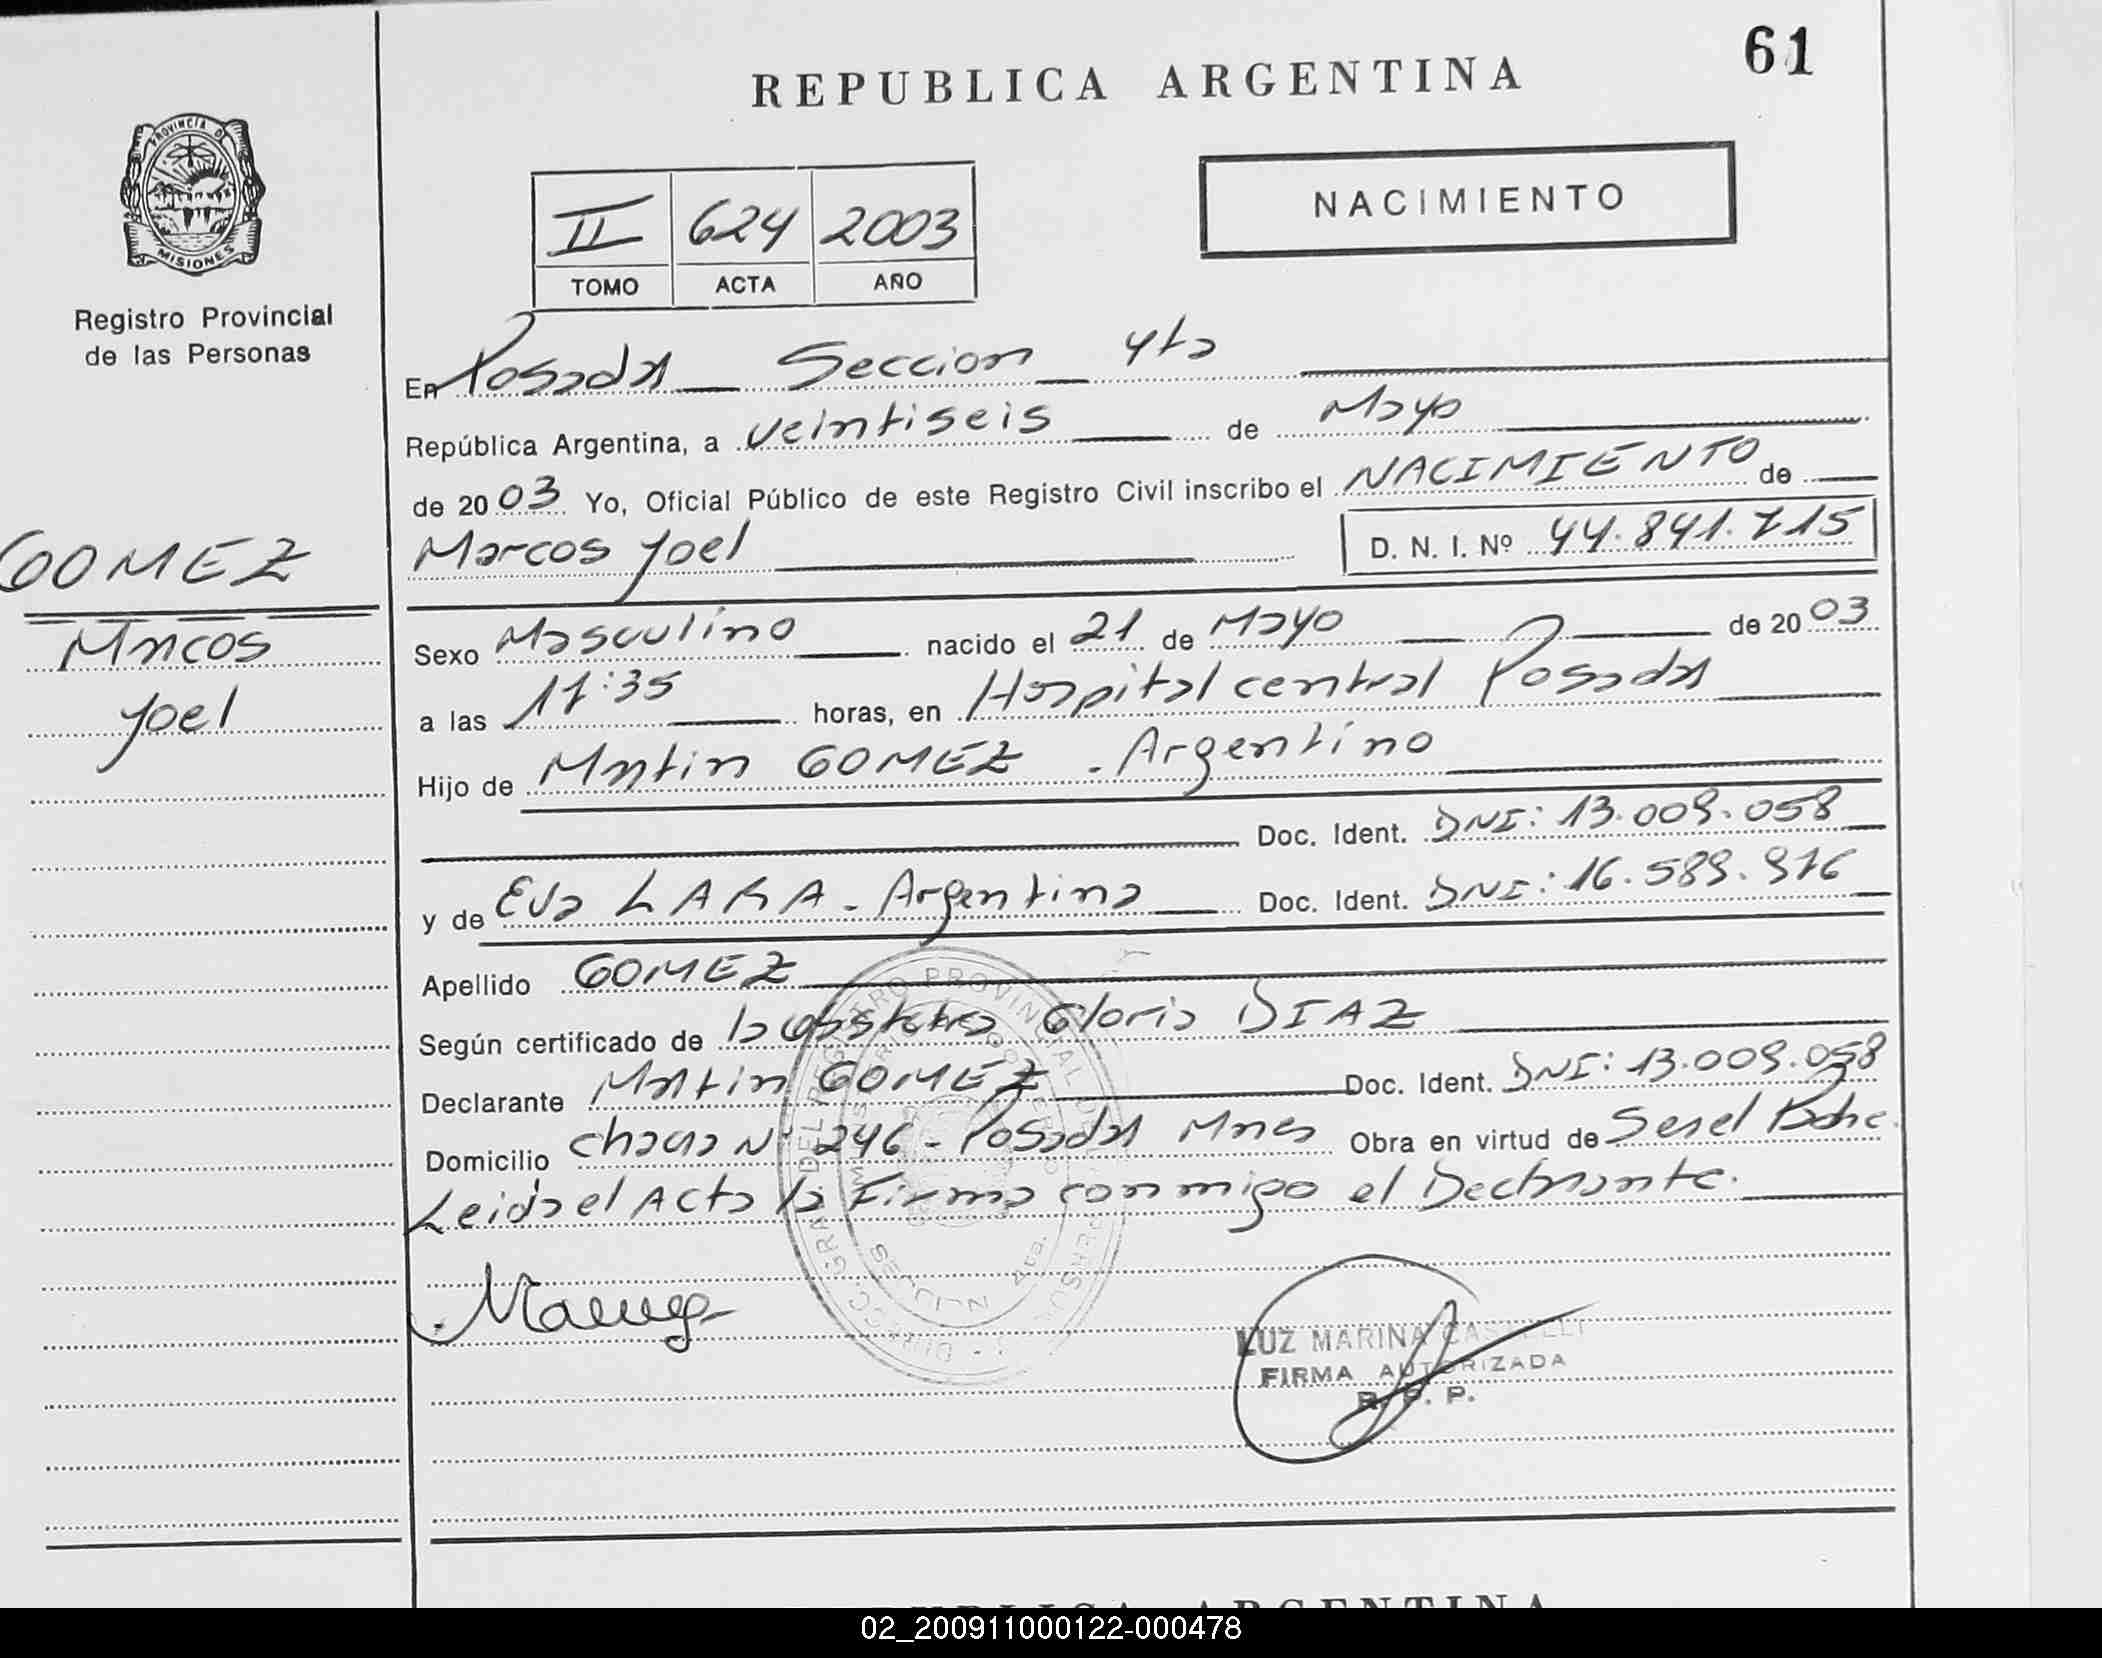 61
REPUBLICA ARGENTINA
PROVINCIA D
MISIONES
Registro Provincial
de las Personas
NACIMIENTO
II 624 2003
TOMO ACTA AÑO
En Posadas Seccion 4ta
República Argentina, a veintiseis de Mayo
de 2003 Yo, Oficial Público de este Registro Civil inscribo el NACIMIENTO de
Marcos Joel D. N. I. Nº 44.841.715
GOMEZ
Marcos
Joel
Sexo Masculino nacido el 21 de Mayo de 2003
a las 11:35 horas, en Hospital central Posadas
Hijo de Martin GOMEZ - Argentino
Doc. Ident. DNI: 13.009.058
y de Eva LARA - Argentina Doc. Ident. DNI: 16.589.976
Apellido GOMEZ
Según certificado de la obstetra Gloria DIAZ
Declarante Martin GOMEZ Doc. Ident. DNI: 13.009.058
Domicilio Chacra Nº 246 - Posadas Mnes Obra en virtud de
Leida el Acta la Firma conmigo el Declarante.
LUZ MARINA CASTELLI
FIRMA AUTORIZADA
R. P. P.
02_200911000122-000478